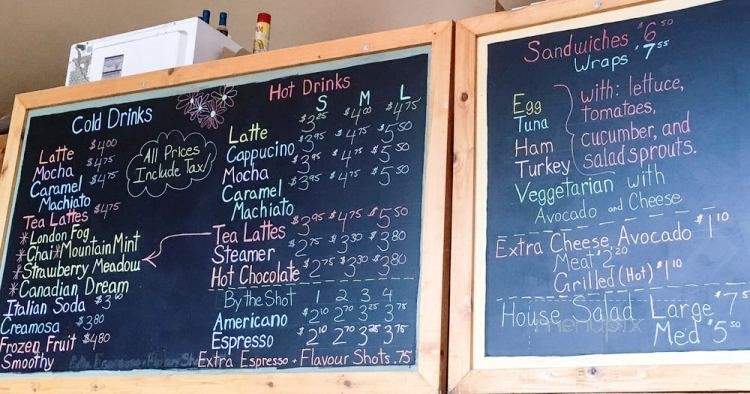 Cold Drinks
Latte $4.00
Mocha $4.75
Caramel $4.75
Machiato
Tea Lattes $4.75
*London Fog
*Chai *Mountain Mint
*Strawberry Meadow
*Canadian Dream
Italian Soda
Creamosa $3.80
Frozen Fruit $4.80
Smoothy
All Prices
Include Tax!
Hot Drinks
S M L
Latte $3.25 $4.00 $4.75
Cappucino $3.95 $4.75 $5.50
Mocha $3.95 $4.75 $5.50
Caramel $3.95 $4.75 $5.50
Machiato
Tea Lattes $3.95 $4.75 $5.50
Steamer $2.75 $3.30 $3.80
Hot Chocolate $2.75 $3.30 $3.80
By the Shot 1 2 3 4
Americano $2.10 2.70 3.25 3.75
Espresso $2.10 2.70 3.25 3.75
Extra Espresso + Flavour Shots .75
Sandwiches $6.50
Wraps $7.55
Egg
Tuna
Ham
Turkey
with: lettuce,
tomatoes,
cucumber, and
salad sprouts.
Veggetarian with
Avocado and Cheese
Extra Cheese, Avocado $1.10
Meat $2.20
Grilled (Hot) $1.10
House Salad Large
Med $5.50
menupix